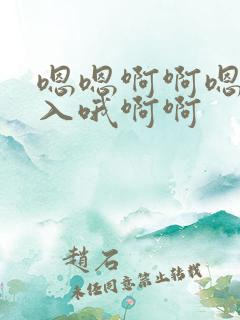 嗯嗯啊啊嗯
入哦啊啊
赵石
未经同意禁止转载